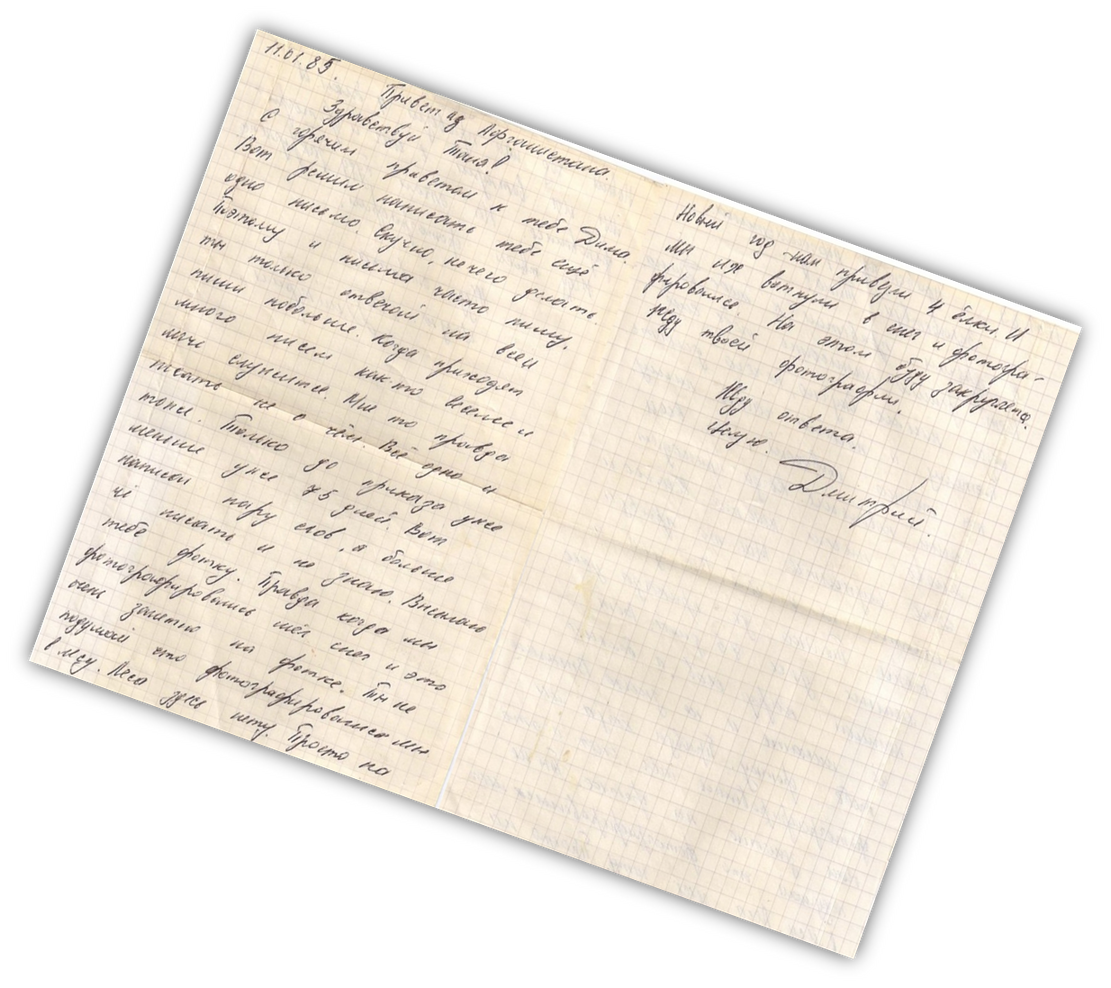 11.01.85.
Привет из Афганистана.
Здравствуй Таня!
С горячим приветом к тебе Дима.
Вот решил написать тебе ещё
одно письмо. Скучно, нечего делать.
Поэтому и письма часто пишу.
ты только отвечай на всеи
пиши побольше. Когда приходят
много писем как то веселее и
легче служится. Мне то правда
писать не о чём. Всё одно и
тоже. Только до приказа уже
меньше уже 75 дней. Вот
написал пару слов, а больше
чё писать и не знаю. Высылаю
тебе фотку. Правда когда мы
фотографировались шёл снег и это
очень заметно на фотке. Ты не
подумай что фотографировались мы
в лесу. Леса здесь нету. Просто на
Новый год нам привезли 4 ёлки. И
мы их воткнули в снег и фотогра-
фировались. На этом буду закругляться.
Жду твоей фотографи.
Жду ответа.
Целую.
Дмитрий.